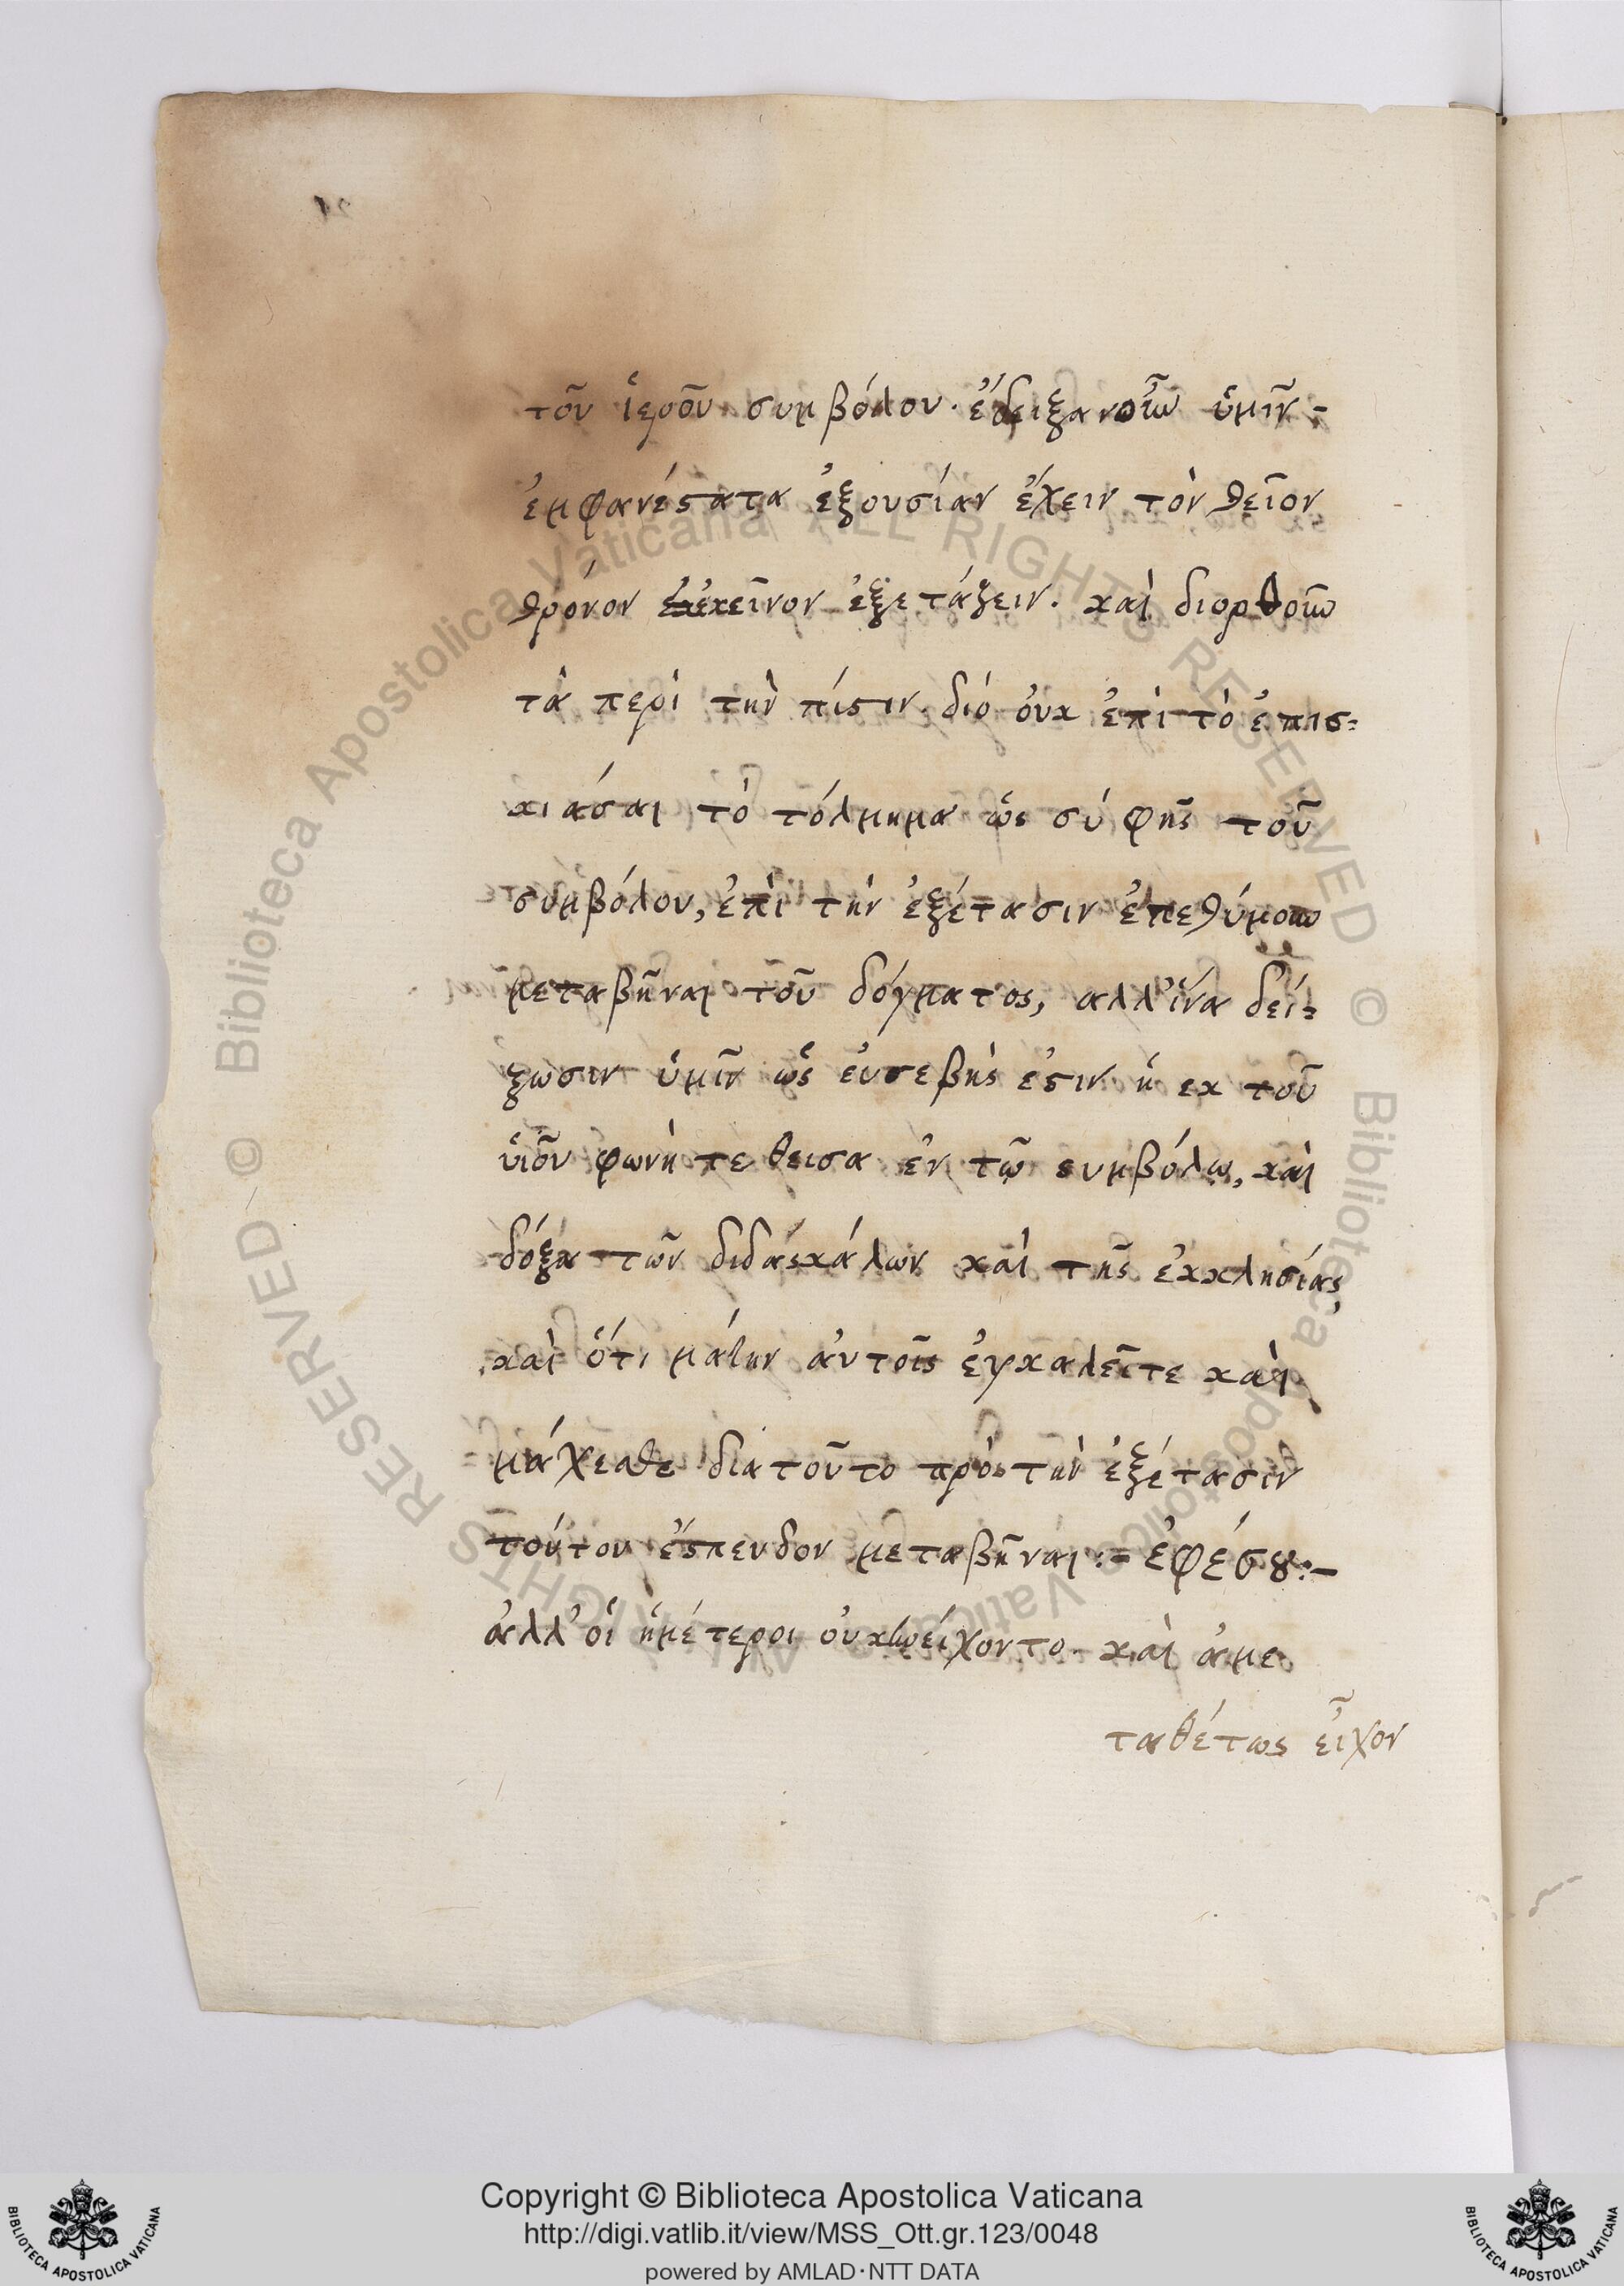 τοῦ ἱεροῦ συμβόλου· ἔδειξαν οὖν ὑμῖν
ἐμφανέστατα ἐξουσίαν ἔχειν τὸν θεῖον
θρόνον ἐκεῖνον ἐξετάζειν. καὶ διορθοῦν
τὰ περὶ τὴν πίστιν. διὸ οὐκ ἐπὶ τὸ ἐπισ=
κιάσαι τὸ τόλμημα ὡς σύ φῆς τοῦ
συμβόλου, ἐπὶ τὴν ἐξέτασιν ἐπεθύμουν
μεταβῆναι τοῦ δόγματος, αλλ' ἵνα δεί=
ξωσιν ὑμῖν ὡς ἐυσεβὴς ἐστιν ἡ εκ τοῦ
ὑιοῦ φωνὴ τεθεισα ἐν τῷ συμβόλω, καὶ
δόξα τῶν διδάσκάλων καὶ τῆς ἐκκλησίας,
καὶ ὅτι μάτην ἀυτοῖς ἐγκαλεῖτε καὶ
μάχεσθε διατοῦτο πρὸς τὴν ἐξέτασιν
τούτου ἔσπευδον μεταβῆναι := ἐφέσου:-
ἀλλ' οἱ ἡμέτεροι ὀυχ ὑπείχοντο. καὶ ἀμε
ταθέτως εἶχον
Copyright © Biblioteca Apostolica Vaticana
http://digi.vatlib.it/view/MSS_Ott.gr.123/0048
powered by AMLAD·NTT DATA